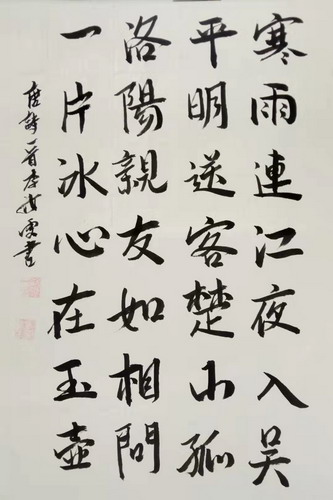 寒雨連江夜入吴
平明送客楚山孤
洛陽親友如相問
一片冰心在玉壺
唐詩一首李
書